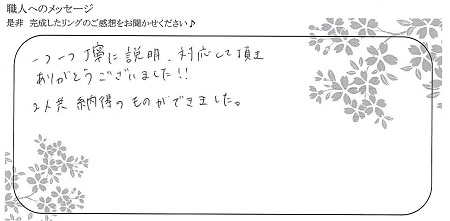 職人へのメッセージ
是非 完成したリングのご感想をお聞かせください♪
一つ一つ丁寧に説明、対応して頂き
ありがとうございました!!
2人共 納得のものができました。